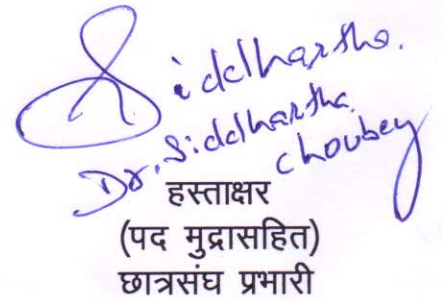 Siddhartha.
Dr. Siddhartha
Choubey
हस्ताक्षर
(पद मुद्रासहित)
छात्रसंघ प्रभारी